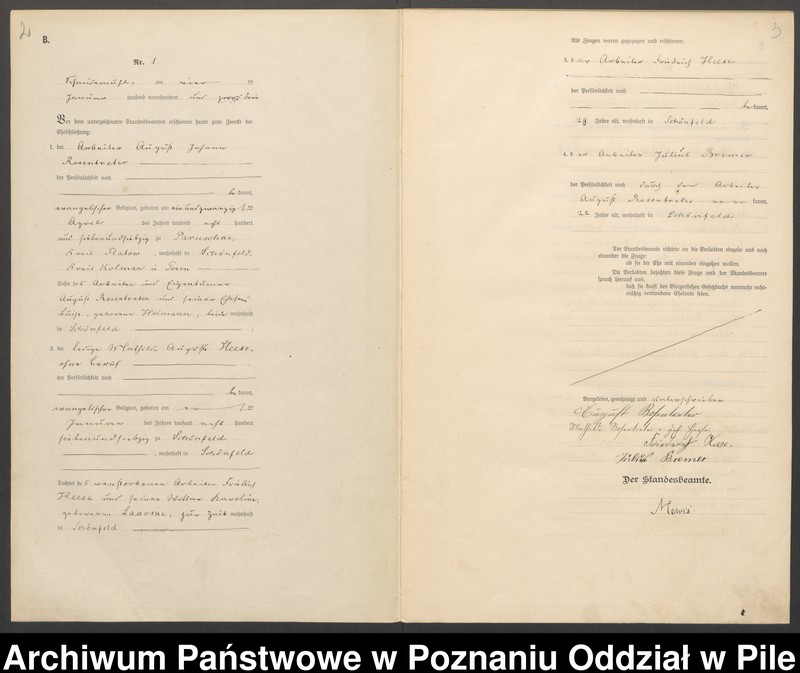 2
B.
Nr. 1
Schneidemühl, am vier ten
Januar tausend neunhundert und
Vor dem unterzeichneten Standesbeamten erschienen heute zum Zwecke der
Eheschließung:
1. der Arbeiter August Johann
Rosentreter
der Persönlichkeit nach
be kannt,
evangelischer Religion, geboren am einundzwanzig sten
April des Jahres tausend acht hundert
und siebenundsiebzig zu
Kreis Flatow, wohnhaft in Schönfeld,
Kreis Kolmar in Posen
Sohn des Arbeiter und Eigentümer
August Rosentreter und seiner Ehefrau
geborene beide wohnhaft
in Schönfeld
2. die ledige Mathilde Auguste Heese,
ohne Beruf
der Persönlichkeit nach
be kannt,
evangelischer Religion, geboren am ten
Januar des Jahres tausend acht hundert
siebenundsiebzig zu Schönfeld
, wohnhaft in Schönfeld
Tochter des verstorbenen Arbeiter Friedrich
Heese und seiner Witwe Karoline,
geborenen zur Zeit wohnhaft
in Schönfeld
3
Als Zeugen waren zugezogen und erschienen:
3. der Arbeiter Friedrich Heese
der Persönlichkeit nach
be kannt,
28 Jahre alt, wohnhaft in Schönfeld
4. der Arbeiter Julius Bremer
der Persönlichkeit nach durch den Arbeiter
August Rosentreter kannt,
22 Jahre alt, wohnhaft in Schönfeld
Der Standesbeamte richtete an die Verlobten einzeln und nach
einander die Frage:
ob sie die Ehe mit einander eingehen wollen.
Die Verlobten bejahten diese Frage und der Standesbeamte
sprach hierauf aus,
daß sie kraft des Bürgerlichen Gesetzbuchs nunmehr recht-
mäßig verbundene Eheleute seien.
Vorgelesen, genehmigt und unterschrieben
August Rosentreter
Mathilde Rosentreter geb. Heese
Friedrich Heese.
Julius Bremer
Der Standesbeamte.
Archiwum Państwowe w Poznaniu Oddział w Pile